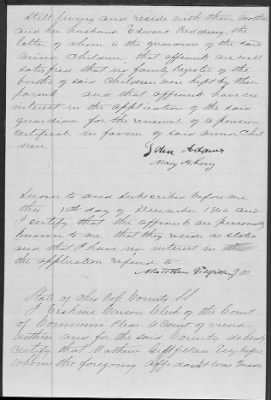 still living and reside with their mother
and her husband Edward Redding, the
latter of whom is the guardian of the said
minor children, that affiants are well
satisfied that no family register of the
births of said children was kept by their
parents and that affiants have no
interest in the application of the said
guardian for the renewal of a pension
certificate in favor of said minor chil
dren
John Adams
Mary A.
Sworn to and subscribed before me
this day of December 1866 and
I certify that the affiants are personally
known to me that they reside as stated
and that I have no interest in
the application referred to
State of Ohio Ross County SS
I Erskine Carson Clerk of the Court
of Common Pleas a Court of record
within and for the said County do hereby
certify that Mathew Gilfillan Esq before
whom the foregoing affidavit was made